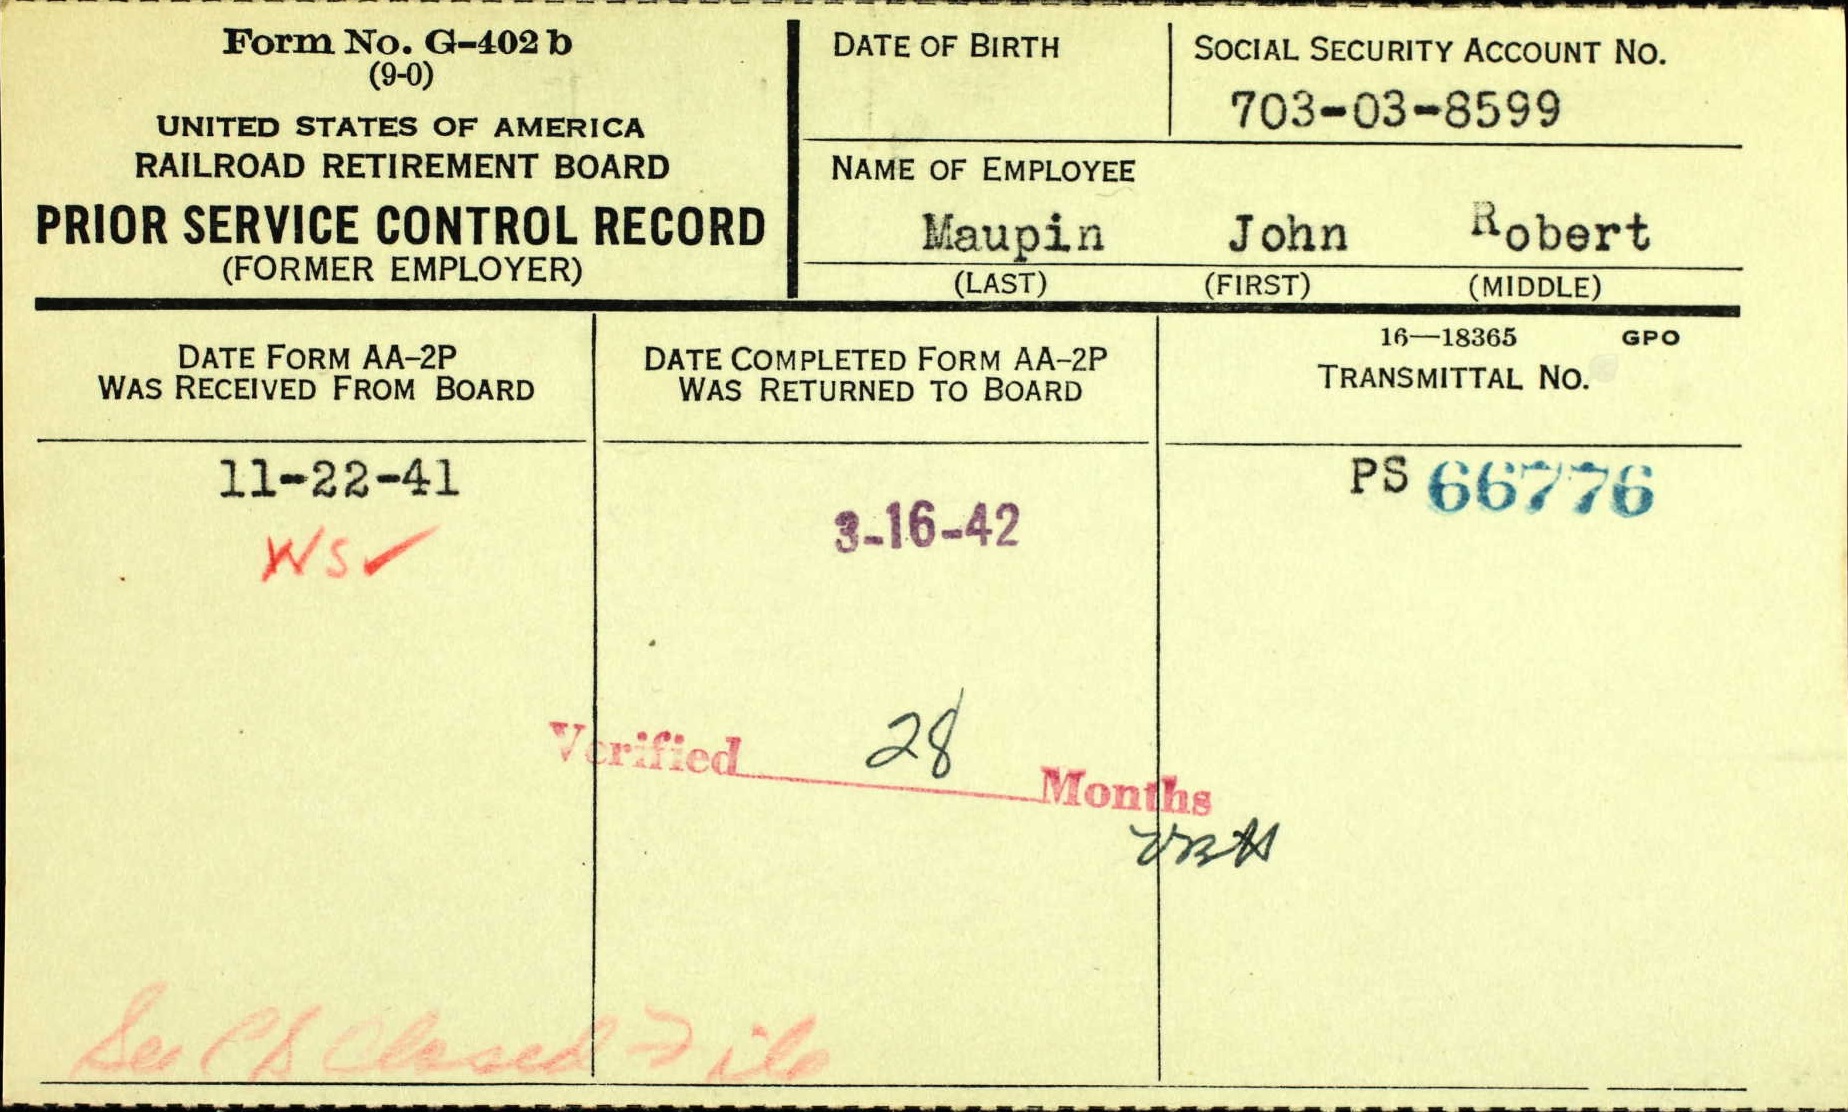 Form No. G-402 b
(9-0)
UNITED STATES OF AMERICA
RAILROAD RETIREMENT BOARD
PRIOR SERVICE CONTROL RECORD
(FORMER EMPLOYER)
DATE OF BIRTH
SOCIAL SECURITY ACCOUNT NO.
703-03-8599
NAME OF EMPLOYEE
Maupin John Robert
(LAST) (FIRST) (MIDDLE)
DATE FORM AA-2P
WAS RECEIVED FROM BOARD
DATE COMPLETED FORM AA-2P
WAS RETURNED TO BOARD
16—18365 GPO
TRANSMITTAL NO.
11-22-41
WS✓
3-16-42
PS 66776
Verified 28 Months
See PS Closed File